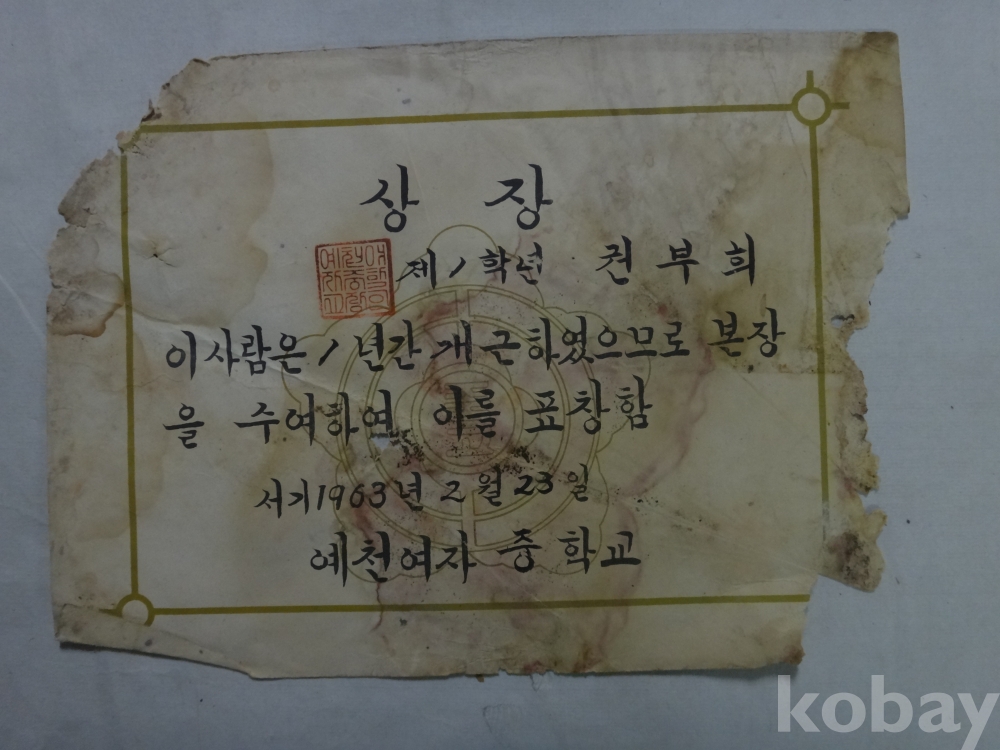 상 장
제 1 학년 권 부 희
이 사람은 1 년간 개근하였으므로 본장
을 수여하여 이를 표창함
서기 1963 년 2 월 23 일
예천여자 중 학교
kobay